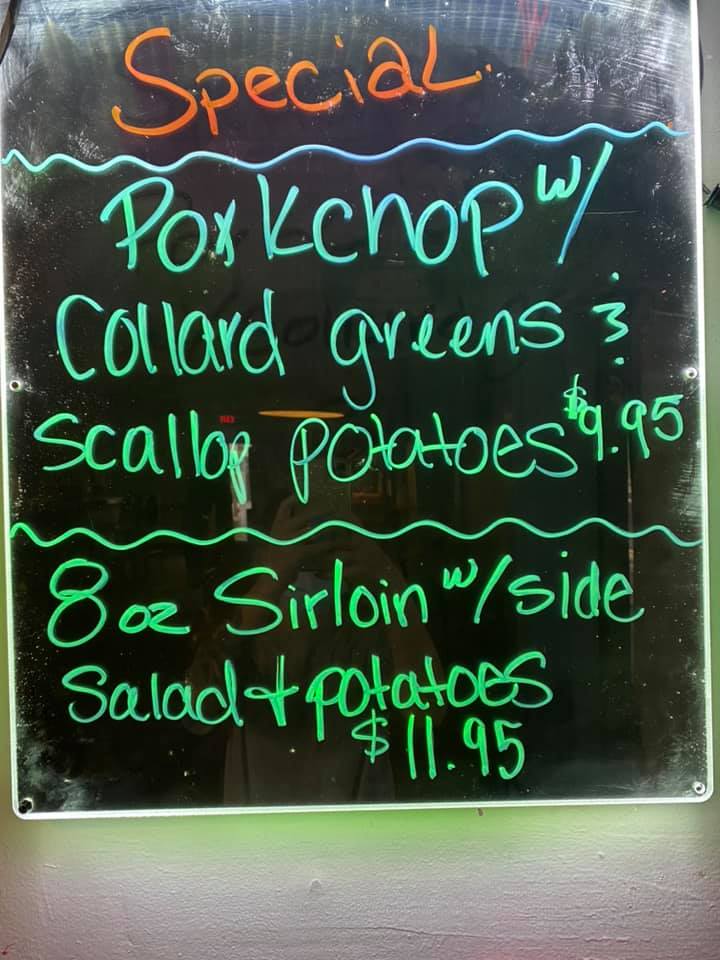 Special.
Porkchop w/
Collard greens &
Scallop potatoes $9.95
8 oz Sirloin w/ side
Salad + potatoes
$11.95